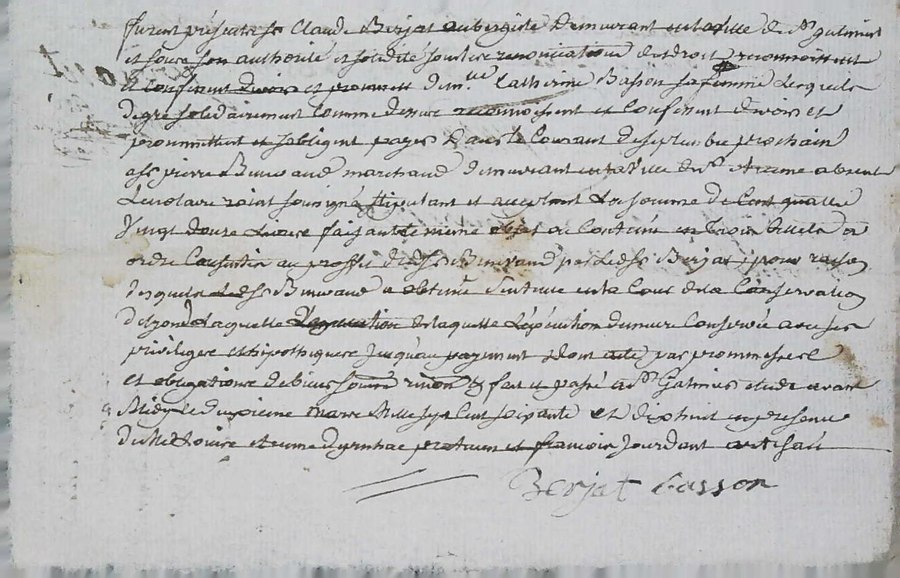 furent présents sr Claude Berjat aubergiste demeurant en la ville de St galmier
et sous son authorité et solidité sous les renonciations de droit
dem.lle Catherine Basson sa femme Lesquels
de gré solidairement comme dessus reconnoissent et Confessent devoir et
promettent et sobligent payer dans le Courant de septembre prochain
a sr pierre marchand demeurant en la ville de St Etienne absent
Le notaire roial soussigné stipulant et acceptant La somme de Cent quatre
Vingt douze Livres faisant le même objet que Contenu en trois billets a
ordre Causés au proffit dudt sr par Ledt sr Berjat, pour raison
desquels Ledt sr a obtenu Sentence en la Cour de la Conservation
de Lyon Laquelle de laquelle Lexécution demeure Conservée avec ses
privileges et hipotheques Jusqu'au payement dont acte par promesses
et obligations de biens soumis renon &c fait et passé a St Galmier etude avant
Midy Le deuxieme mars Mille sept Cent soixante et dixhuit en presence
de praticien et francois Jourdant artisan
Berjat Basson